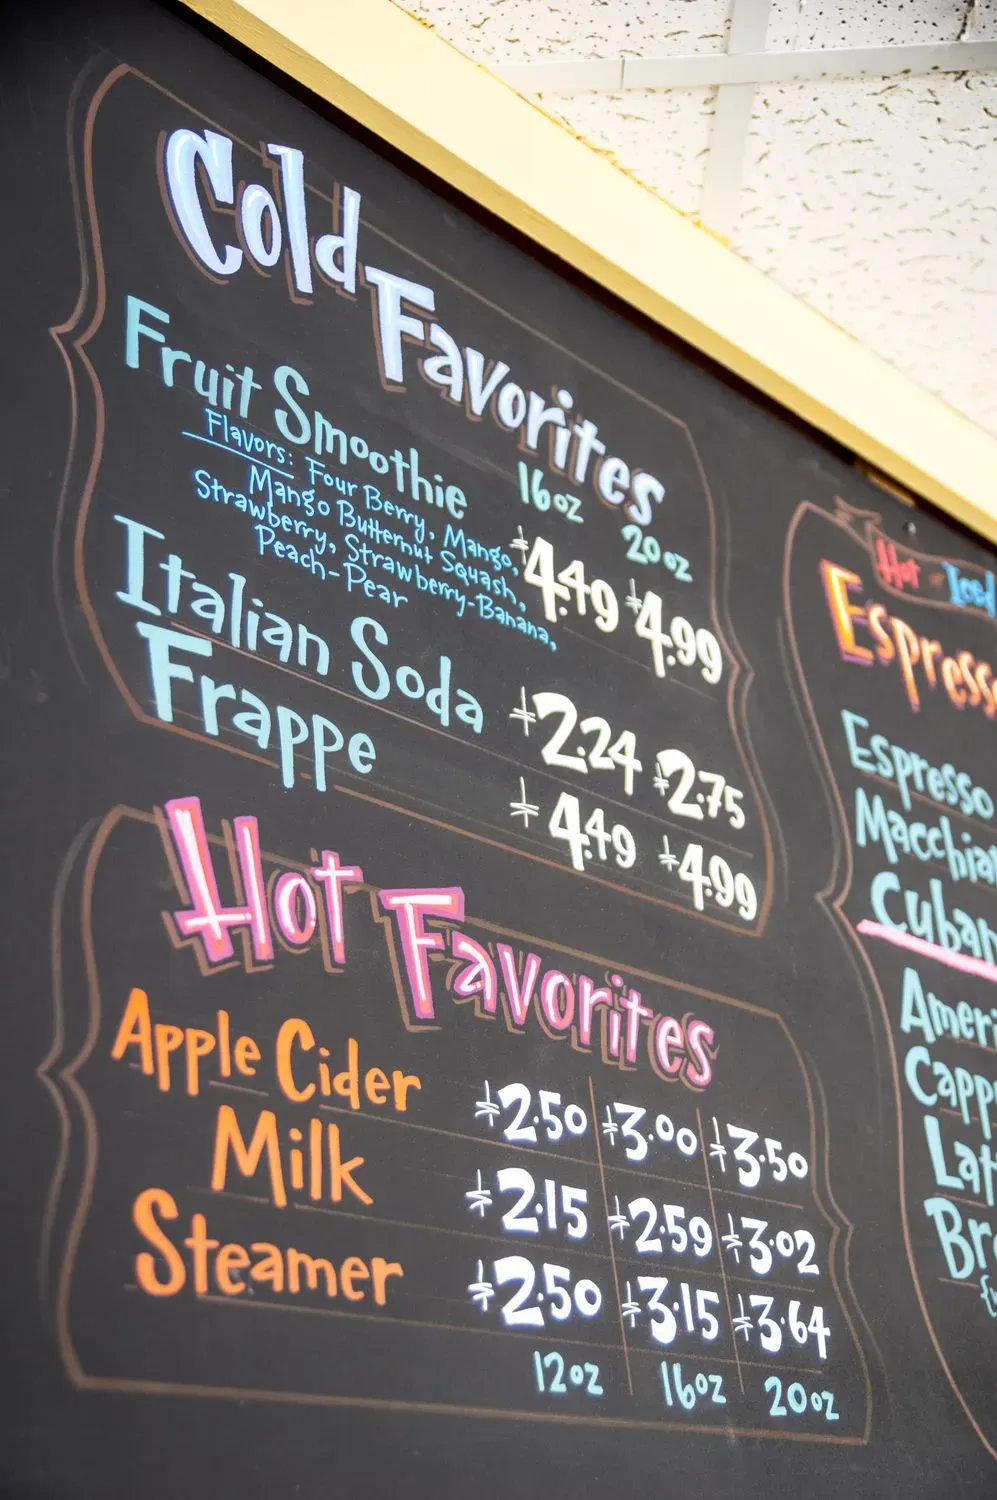 Cold Favorites
Fruit Smoothie 16oz 20oz
Flavors: Four Berry, Mango,
Mango Butternut Squash,
Strawberry, Strawberry-Banana,
Peach-Pear
$4.49 $4.99
Italian Soda $2.24 $2.75
Frappe $4.49 $4.99
Hot Favorites
Apple Cider $2.50 $3.00 $3.50
Milk $2.15 $2.59 $3.02
Steamer $2.50 $3.15 $3.64
12oz 16oz 20oz
Hot - Iced
Espresso
Espresso
Macchia
Cuban
Ameri
Capp
Lat
Br